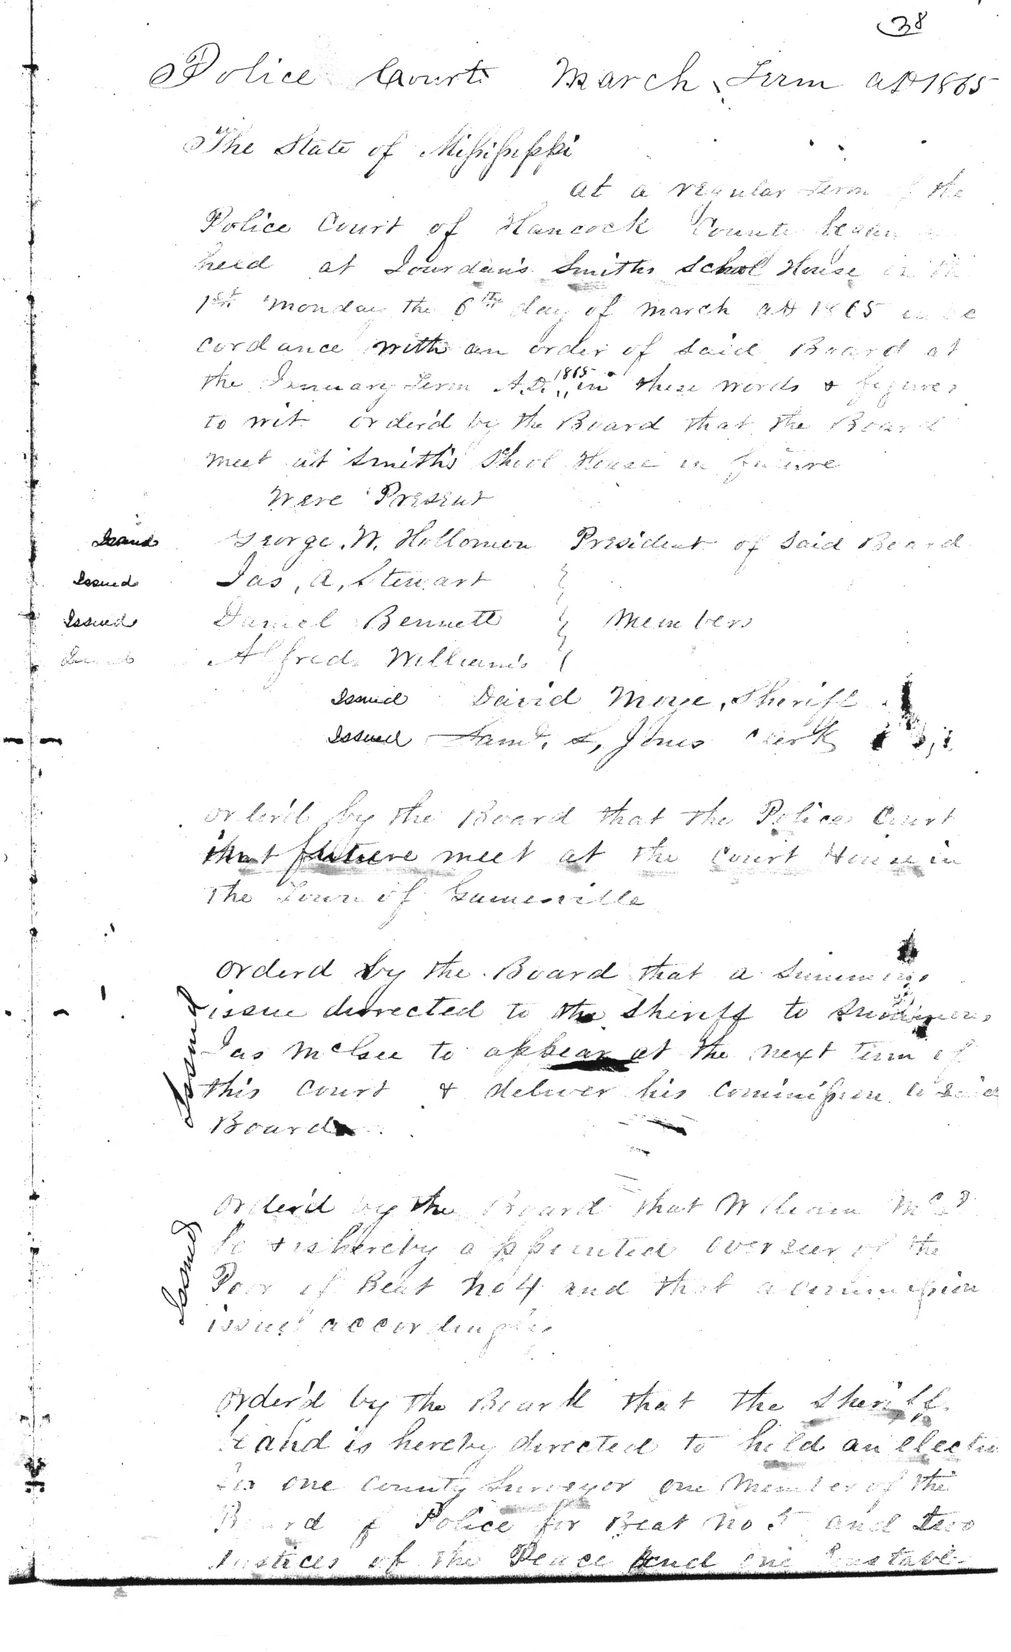 38
Police Court March Term AD 1865
The State of Mississippi
at a regular term of the
Police Court of Hancock County began
held at Jourdan's Smiths School House in the
1st Monday the 6th day of March AD 1865 in ac
cordance with an order of said Board at
the January Term A.D. 1865 in these words & figures
to wit order'd by the Board that the Board
meet at Smith's School House in future
Were Present
Issued George. W. Hollomon President of Said Board
Issued Jas, A, Stewart
Issued Daniel Bennett } Members
Issued Alfred Williams
Issued David Moye, Sheriff
Issued Saml. S, Jones Clerk
order'd by the Board that the Police Court
that future meet at the Court House in
the Town of Gainesville
Issued
orderd by the Board that a Summons
issue directed to the Sheriff to Summons
Jas McGee to appear at the next Term of
this Court & deliver his Commission to said
Board
Issued
order'd by the Board that William
be & is hereby appointed overseer of the
Poor of Beat No 4 and that a commission
issue accordingly
order'd by the Board that the Sheriff
be and is hereby directed to hold an electio
for one County Surveyor one Member of the
Board of Police for Beat No 5 and two
Justices of the Peace and one Constable